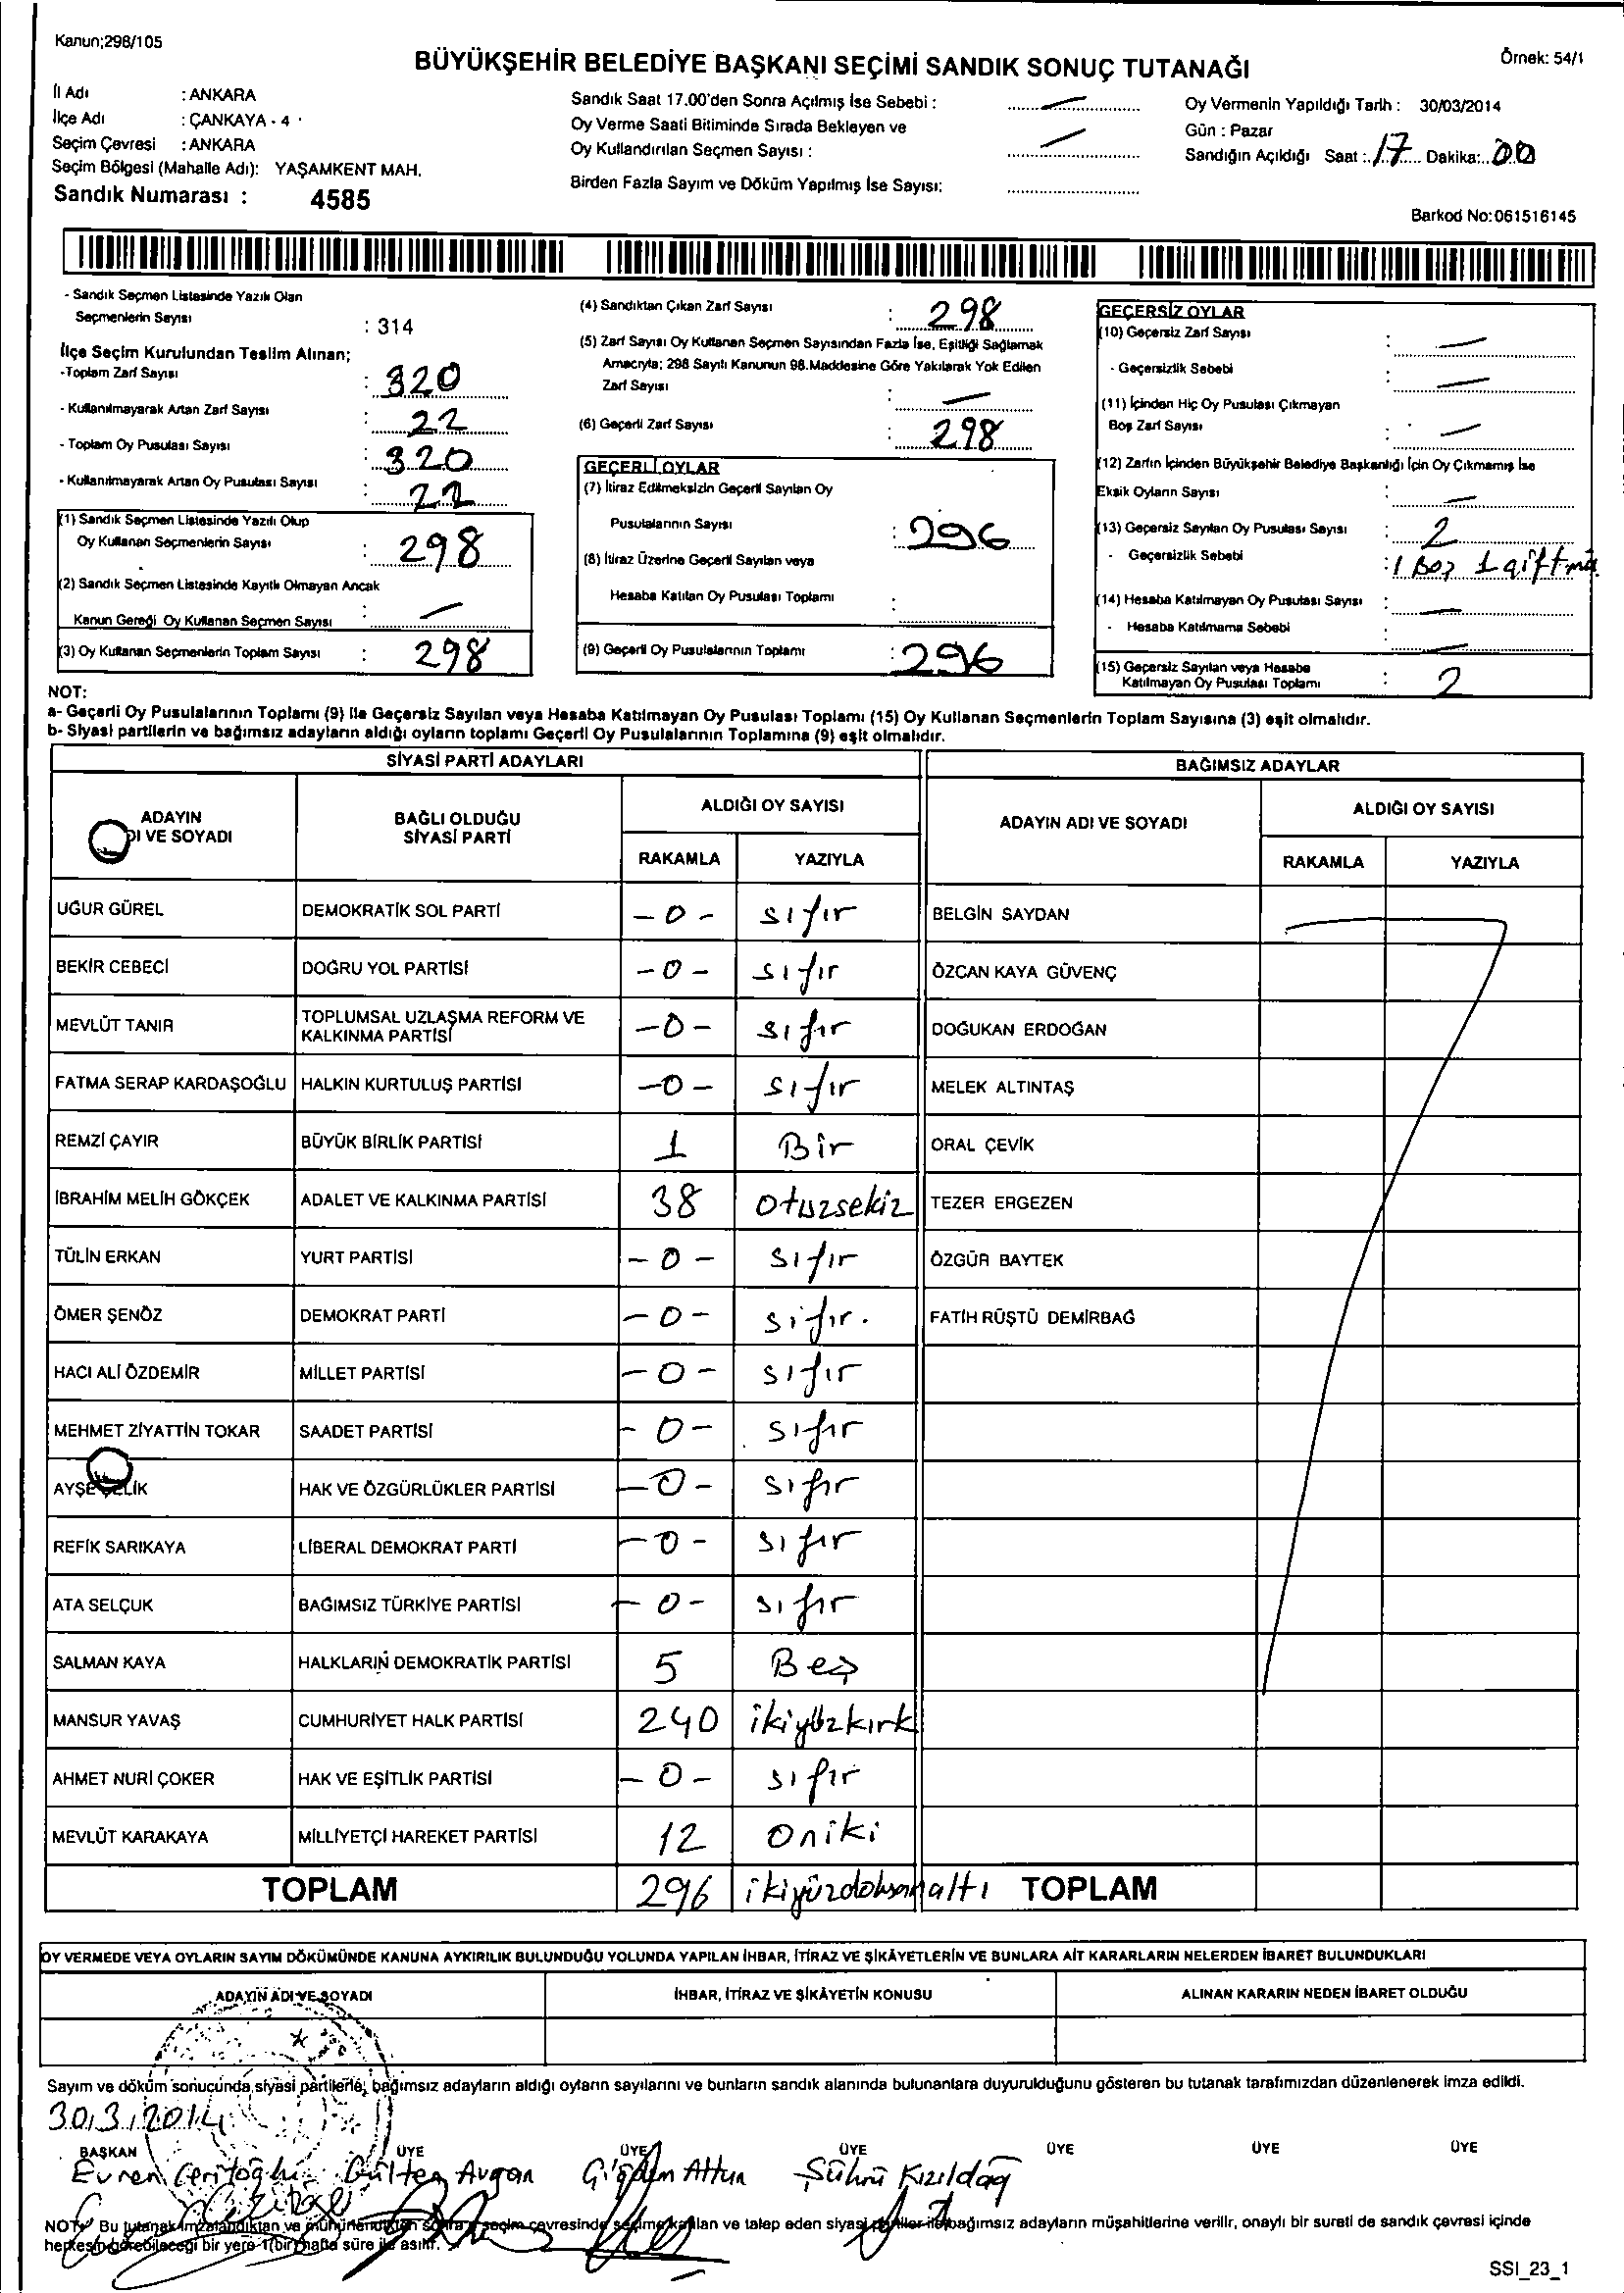 Kanun;298/105
BÜYÜKŞEHİR BELEDİYE BAŞKANI SEÇİMİ SANDIK SONUÇ TUTANAĞI
Örnek: 54/1
İl Adı : ANKARA
İlçe Adı : ÇANKAYA - 4
Seçim Çevresi : ANKARA
Seçim Bölgesi (Mahalle Adı): YAŞAMKENT MAH.
Sandık Numarası : 4585
Sandık Saat 17.00'den Sonra Açılmış İse Sebebi : —
Oy Verme Saati Bitiminde Sırada Bekleyen ve
Oy Kullandırılan Seçmen Sayısı : —
Birden Fazla Sayım ve Döküm Yapılmış İse Sayısı:
Oy Vermenin Yapıldığı Tarih : 30/03/2014
Gün : Pazar
Sandığın Açıldığı Saat : 17 Dakika: 00
Barkod No:061516145
- Sandık Seçmen Listesinde Yazılı Olan
Seçmenlerin Sayısı : 314
İlçe Seçim Kurulundan Teslim Alınan;
-Toplam Zarf Sayısı : 320
- Kullanılmayarak Artan Zarf Sayısı : 22
- Toplam Oy Pusulası Sayısı : 320
- Kullanılmayarak Artan Oy Pusulası Sayısı : 22
(1) Sandık Seçmen Listesinde Yazılı Olup
Oy Kullanan Seçmenlerin Sayısı : 298
(2) Sandık Seçmen Listesinde Kayıtlı Olmayan Ancak
Kanun Gereği Oy Kullanan Seçmen Sayısı : —
(3) Oy Kullanan Seçmenlerin Toplam Sayısı : 298
(4) Sandıktan Çıkan Zarf Sayısı : 298
(5) Zarf Sayısı Oy Kullanan Seçmen Sayısından Fazla İse, Eşitliği Sağlamak
Amacıyla; 298 Sayılı Kanunun 98.Maddesine Göre Yakılarak Yok Edilen
Zarf Sayısı : —
(6) Geçerli Zarf Sayısı : 298
GEÇERLİ OYLAR
(7) İtiraz Edilmeksizin Geçerli Sayılan Oy
Pusulalarının Sayısı : 296
(8) İtiraz Üzerine Geçerli Sayılan veya
Hesaba Katılan Oy Pusulası Toplamı :
(9) Geçerli Oy Pusulalarının Toplamı : 296
GEÇERSİZ OYLAR
(10) Geçersiz Zarf Sayısı : —
- Geçersizlik Sebebi : —
(11) İçinden Hiç Oy Pusulası Çıkmayan
Boş Zarf Sayısı : —
(12) Zarfın İçinden Büyükşehir Belediye Başkanlığı İçin Oy Çıkmamış İse
Eksik Oyların Sayısı : —
(13) Geçersiz Sayılan Oy Pusulası Sayısı : 2
- Geçersizlik Sebebi : 1 Boş 1 çift
(14) Hesaba Katılmayan Oy Pusulası Sayısı : —
- Hesaba Katılmama Sebebi : —
(15) Geçersiz Sayılan veya Hesaba
Katılmayan Oy Pusulası Toplamı : 2
NOT:
a- Geçerli Oy Pusulalarının Toplamı (9) ile Geçersiz Sayılan veya Hesaba Katılmayan Oy Pusulası Toplamı (15) Oy Kullanan Seçmenlerin Toplam Sayısına (3) eşit olmalıdır.
b- Siyasi partilerin ve bağımsız adayların aldığı oyların toplamı Geçerli Oy Pusulalarının Toplamına (9) eşit olmalıdır.
SİYASİ PARTİ ADAYLARI BAĞIMSIZ ADAYLAR
ADAYIN
DI VE SOYADI
BAĞLI OLDUĞU
SİYASİ PARTİ
ALDIĞI OY SAYISI
RAKAMLA YAZIYLA
ADAYIN ADI VE SOYADI
ALDIĞI OY SAYISI
RAKAMLA YAZIYLA
UĞUR GÜREL DEMOKRATİK SOL PARTİ -0- sıfır BELGİN SAYDAN
BEKİR CEBECİ DOĞRU YOL PARTİSİ -0- sıfır ÖZCAN KAYA GÜVENÇ
MEVLÜT TANIR TOPLUMSAL UZLAŞMA REFORM VE
KALKINMA PARTİSİ -0- sıfır DOĞUKAN ERDOĞAN
FATMA SERAP KARDAŞOĞLU HALKIN KURTULUŞ PARTİSİ -0- sıfır MELEK ALTINTAŞ
REMZİ ÇAYIR BÜYÜK BİRLİK PARTİSİ 1 Bir ORAL ÇEVİK
İBRAHİM MELİH GÖKÇEK ADALET VE KALKINMA PARTİSİ 38 otuzsekiz TEZER ERGEZEN
TÜLİN ERKAN YURT PARTİSİ -0- sıfır ÖZGÜR BAYTEK
ÖMER ŞENÖZ DEMOKRAT PARTİ -0- sifır. FATİH RÜŞTÜ DEMİRBAĞ
HACI ALİ ÖZDEMİR MİLLET PARTİSİ -0- sıfır
MEHMET ZİYATTİN TOKAR SAADET PARTİSİ -0- sıfır
AYŞE ÇELİK HAK VE ÖZGÜRLÜKLER PARTİSİ -0- sıfır
REFİK SARIKAYA LİBERAL DEMOKRAT PARTİ -0- sıfır
ATA SELÇUK BAĞIMSIZ TÜRKİYE PARTİSİ -0- sıfır
SALMAN KAYA HALKLARIN DEMOKRATİK PARTİSİ 5 Beş
MANSUR YAVAŞ CUMHURİYET HALK PARTİSİ 240 ikiyüzkırk
AHMET NURİ ÇOKER HAK VE EŞİTLİK PARTİSİ -0- sıfır
MEVLÜT KARAKAYA MİLLİYETÇİ HAREKET PARTİSİ 12 Oniki
TOPLAM 296 ikiyüzdoksanaltı TOPLAM
OY VERMEDE VEYA OYLARIN SAYIM DÖKÜMÜNDE KANUNA AYKIRILIK BULUNDUĞU YOLUNDA YAPILAN İHBAR, İTİRAZ VE ŞİKÂYETLERİN VE BUNLARA AİT KARARLARIN NELERDEN İBARET BULUNDUKLARI
ADAYIN ADI VE SOYADI İHBAR, İTİRAZ VE ŞİKÂYETİN KONUSU ALINAN KARARIN NEDEN İBARET OLDUĞU
Sayım ve döküm sonucunda siyasi partilerle, bağımsız adayların aldığı oyların sayılarını ve bunların sandık alanında bulunanlara duyurulduğunu gösteren bu tutanak tarafımızdan düzenlenerek imza edildi.
30/3/2014
BAŞKAN ÜYE ÜYE ÜYE ÜYE ÜYE ÜYE
Evren Gülten Avgan Çiğdem Altun Şükrü Kızıldağ
NOT: Bu tutanak imzalandıktan ve mühürlendikten sonra seçim çevresinde seçime katılan ve talep eden siyasi partiler ile bağımsız adayların müşahitlerine verilir, onaylı bir sureti de sandık çevresi içinde
herkesin görebileceği bir yere 1(bir) hafta süre ile asılır.
SSI_23_1